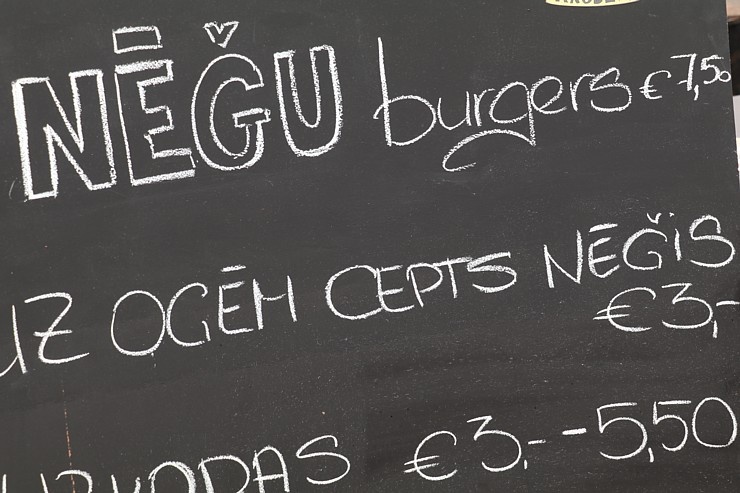 NĒǦU burgers €7,50
UZ OGĒM CEPTS NĒǦIS
€3,-
UZKODAS €3,- - 5,50